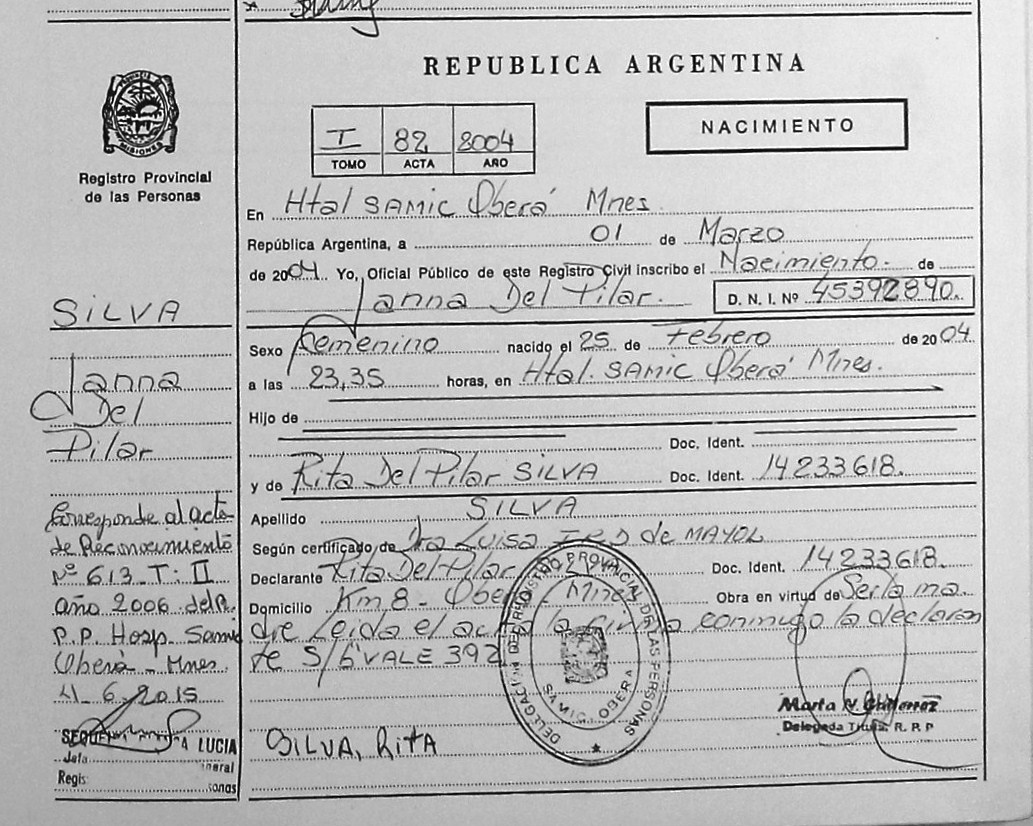 REPUBLICA ARGENTINA
PROVINCIA DE MISIONES
Registro Provincial
de las Personas
I 82 2004
TOMO ACTA AÑO
NACIMIENTO
En Htal SAMIC Oberá Mnes.
República Argentina, a 01 de Marzo
de 2004 Yo, Oficial Público de este Registro Civil inscribo el Nacimiento. de
Janna Del Pilar. D. N. I. Nº 45392890.
Sexo Femenino nacido el 25 de Febrero de 2004
a las 23,35 horas, en Htal. SAMIC Oberá Mnes.
Hijo de
Doc. Ident.
y de Rita Del Pilar SILVA Doc. Ident. 14233618.
Apellido SILVA
Según certificado de Dra Luisa de MAYOL
Declarante Rita Del Pilar Doc. Ident. 14233618.
Domicilio Km 8 - Mnes Obra en virtud de Ser la ma
dre Leida el conmigo la declaran
te S/6 VALE 392
SILVA, RITA
DELEGACIÓN DEL REGISTRO PROVINCIAL DE LAS PERSONAS
SAMIC. OBERA
Marta N. Gutierrez
Delegada Titular R. R. P
SILVA
Janna
Del
Pilar
Corresponde al acta
de Reconocimiento
Nº 613 T: II
año 2006 de la
P.P. Hosp. Samic
Oberá - Mnes.
11-6-2015
LUCIA
Jefa General
Regis sonas